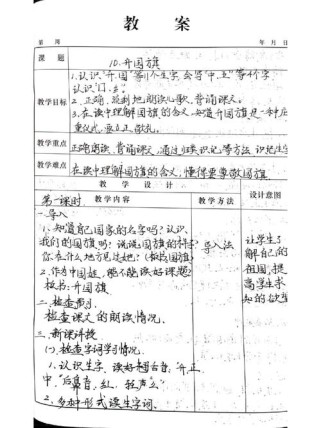 教案
第 周
年 月 日
课题
10.升国旗
1.认识“升、国”等11个生字,会写“中、五”等4个字,
认识“冂、去”。
教学目标
2.正确、流利地朗读儿歌,背诵课文。
3.在读中理解国旗的含义,知道升国旗是一种庄
重仪式,要立正、敬礼。
教学重点
正确朗读、背诵课文,通过归类识记等方法,识记生字
教学难点
在读中理解国旗的含义,懂得要尊敬国旗。
教学设计
设计意图
第一课时
教学内容
教学方法
一.导入
1.知道自己国家的名字吗?认识
我们的国旗吗?说说国旗的样子?
导入法
你在什么地方见过她?(板贴国旗)
2.作为中国娃,能不能读好课题?
板书:升国旗
让学生了
解自己的
祖国,提
高学生求
知的欲望
二.检查预习
检查课文的朗读情况。
三.新课讲授
(一).检查字词学习情况。
1.认识生字,读好翘舌音,升、正、
中,后鼻音,红、轻声么。
2.多种形式读生字词。